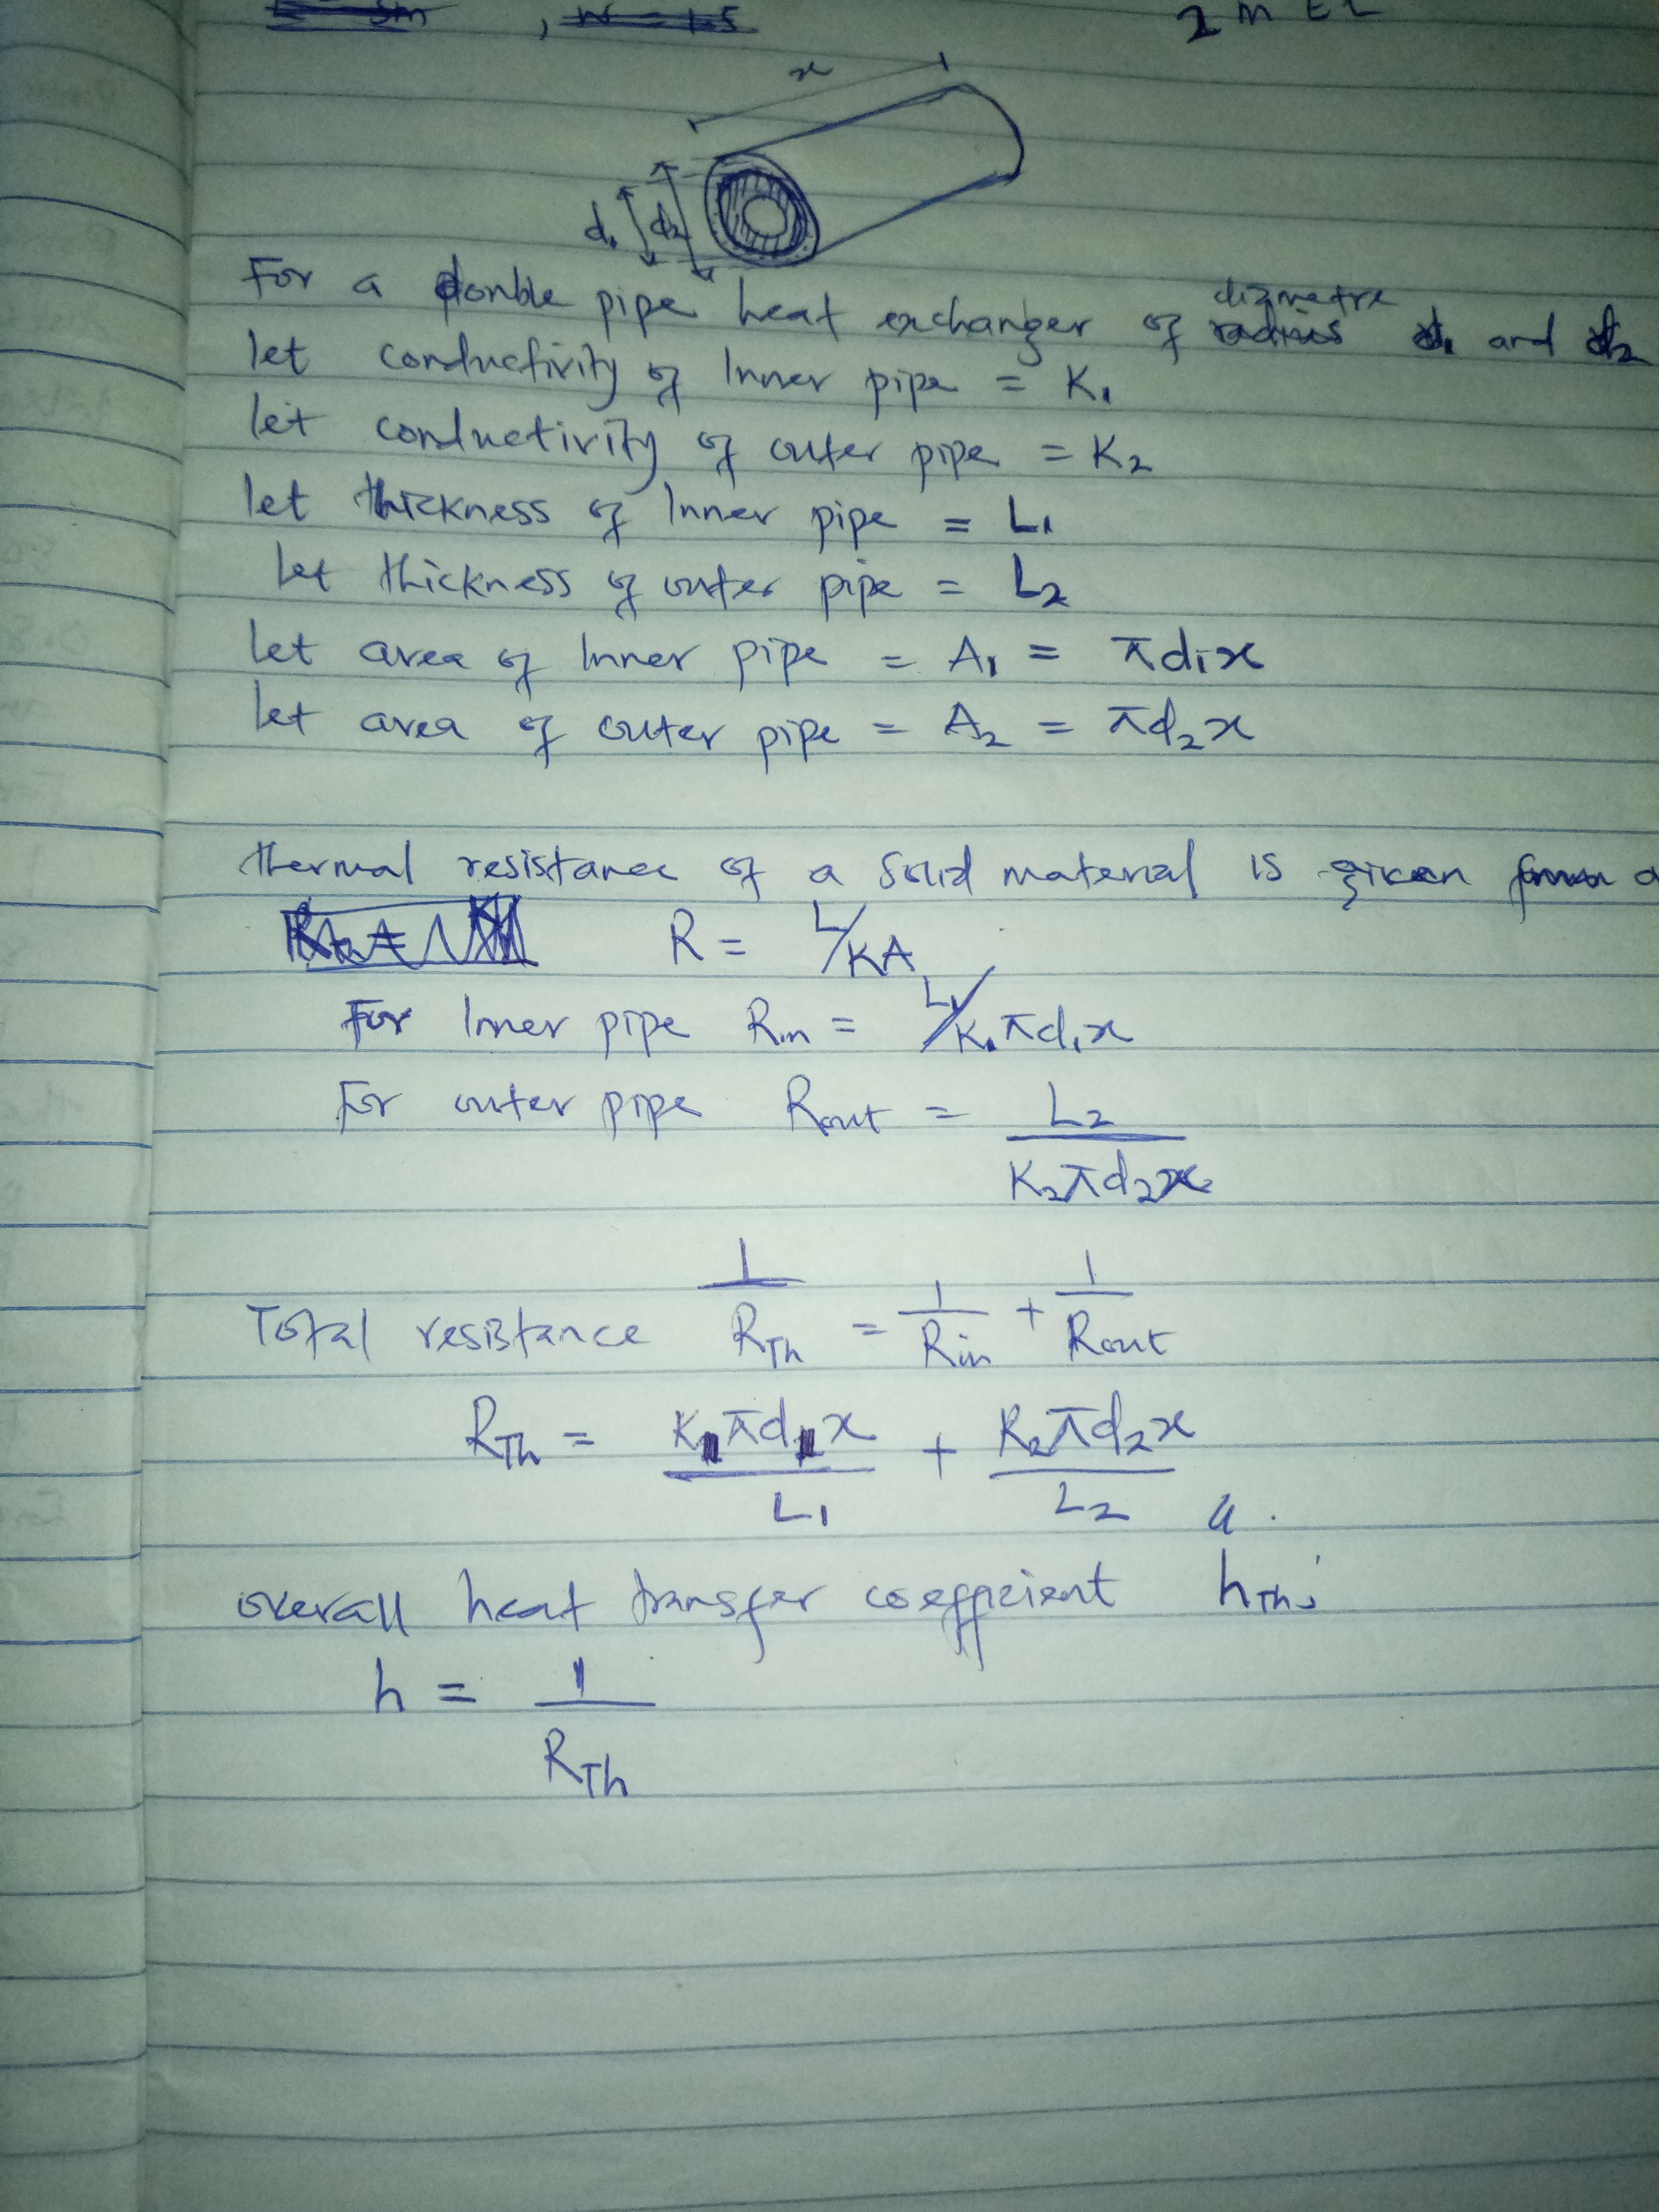 x
d₁ d₂
For a double pipe heat exchanger of diametre d₁ and d₂
let conductivity of Inner pipe = K₁
let conductivity of outer pipe = K₂
let thickness of Inner pipe = L₁
let thickness of outer pipe = L₂
let area of Inner pipe = A₁ = πd₁x
let area of outer pipe = A₂ = πd₂x
thermal resistance of a solid material is given
R = L/KA
For Inner pipe Rin = L₁/K₁πd₁x
For outer pipe Rout = L₂/K₂πd₂x
Total resistance 1/RTh = 1/Rin + 1/Rout
RTh = K₁πd₁x/L₁ + K₂πd₂x/L₂
overall heat transfer coefficient hTh
h = 1/RTh